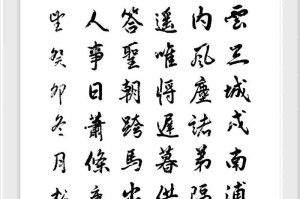 雲三城戍南浦
內風塵諸弟隔
遙唯將遲暮供
答聖朝跨馬出
人事日蕭條
癸卯冬月松